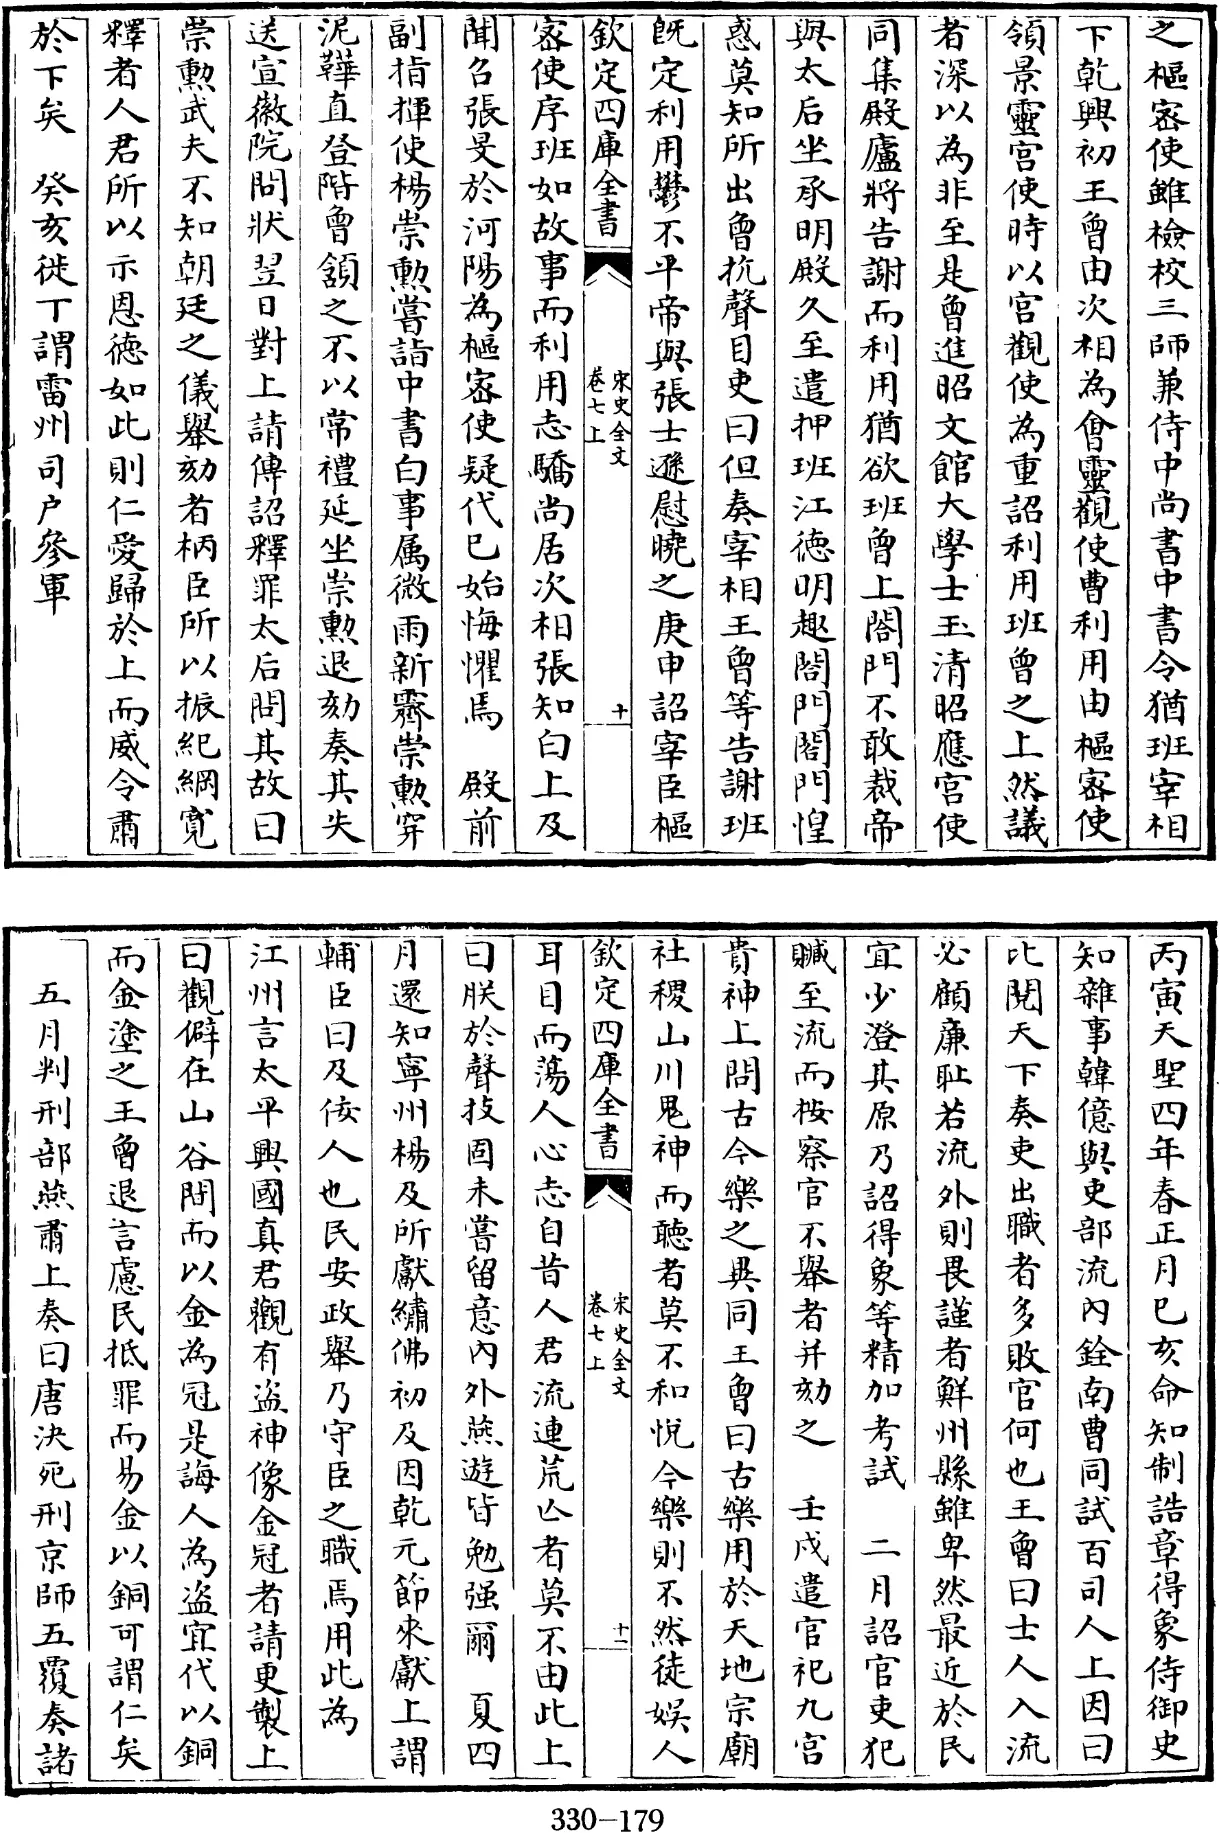 之樞宻使雖檢校三師兼侍中尚書中書令猶班宰相
下乾興初王曾由次相為㑹靈觀使曹利用由樞宻使
領景靈宫使時以宫觀使為重詔利用班曾之上然議
者深以為非至是曾進昭文館大學士玉清昭應宫使
同集殿廬將告謝而利用猶欲班曾上閤門不敢裁帝
與太后坐承明殿久至遣押班江徳明趣閤門閤門惶
惑莫知所出曾抗聲目吏曰但奏宰相王曾等告謝班
既定利用鬱不平帝與張士遜慰曉之庚申詔宰臣樞
欽定四庫全書
宋史全文
卷七上
十
宻使序班如故事而利用志驕尚居次相張知白上及
聞名張旻於河陽為樞宻使疑代已始悔懼焉　殿前
副指揮使楊崇勲嘗詣中書白事属微雨新霽崇勲穿
泥鞾直登階曾頷之不以常禮延坐崇勲退劾奏其失
送宣徽院問狀翌日對上請傳詔釋罪太后問其故曰
崇勲武夫不知朝廷之儀舉劾者柄臣所以振紀綱寛
釋者人君所以示恩徳如此則仁愛歸於上而威令肅
於下矣　癸亥徙丁謂雷州司户參軍
丙寅天聖四年春正月已亥命知制誥章得象侍御史
知雜事韓億與吏部流内銓南曹同試百司人上因曰
比閱天下奏吏出職者多敗官何也王曾曰士人入流
必顧廉耻若流外則畏謹者鮮州縣雖卑然最近於民
宜少澄其原乃詔得象等精加考試　二月詔官吏犯
贓至流而按察官不舉者并劾之　壬戌遣官祀九宫
貴神上問古今樂之異同王曾曰古樂用於天地宗廟
社稷山川鬼神而聽者莫不和恱今樂則不然徒娱人
欽定四庫全書
宋史全文
卷七上
十一
耳目而蕩人心志自昔人君流連荒亾者莫不由此上
曰朕於聲技固未嘗留意内外燕遊皆勉强爾　夏四
月還知寧州楊及所獻繡佛初及因乾元節來獻上謂
輔臣曰及佞人也民安政舉乃守臣之職焉用此為
江州言太平興國真君觀有盗神像金冠者請更製上
曰觀僻在山谷間而以金為冠是誨人為盗宜代以銅
而金塗之王曾退言慮民抵罪而易金以銅可謂仁矣
五月判刑部燕肅上奏曰唐決死刑京師五覆奏諸
330-179